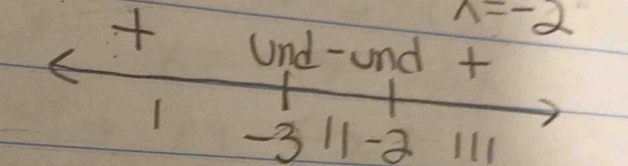 x=-2
+ und - und +
I -3 II -2 III